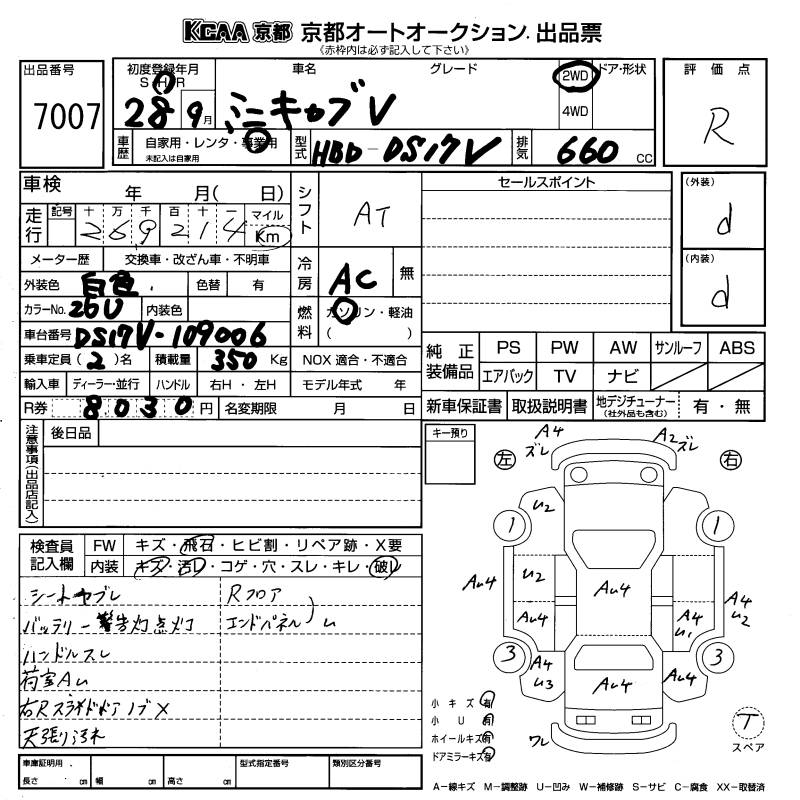 KCAA 京都 京都オートオークション 出品票
《赤枠内は必ず記入して下さい》
出品番号
7007
初度登録年月
S H R
28 9月
車名 グレード
ミニキャブV
2WD
4WD
ドア・形状
評価点
R
車歴
自家用・レンタ・事業用
未記入は自家用
型式
HBD-DS17V
排気
660 cc
車検 年 月( 日)
走行
記号 十 万 千 百 十 一 マイル
269214 Km
シフト
AT
セールスポイント
(外装)
d
(内装)
d
メーター歴 交換車・改ざん車・不明車
外装色 白色 色替 有
冷房 AC 無
カラーNo. 26U 内装色
燃料 ガソリン・軽油
( )
車台番号 DS17V-109006
乗車定員 (2)名 積載量 350 Kg NOX 適合・不適合
輸入車 ディーラー・並行 ハンドル 右H・左H モデル年式 年
R券 8030円 名変期限 月 日
純正装備品
PS PW AW サンルーフ ABS
エアバック TV ナビ
新車保証書 取扱説明書 地デジチューナー (社外品も含む) 有・無
注意事項(出品店記入)
後日品
キー預り
検査員記入欄
FW キズ・飛石・ヒビ割・リペア跡・X要
内装 キズ・汚レ・コゲ・穴・スレ・キレ・破レ
シートヤブレ
バッテリー警告灯点灯
ハンドルスレ
荷室AU
右Rスライドドアノブ X
天張り汚れ
Rフロア
エンドパネル ) U
左 右
A4 ズレ
A2 ズレ
U2
1 1
AU4 U2 AU4 AU4 AU4 U1 A4 U2
3 3
A4 U3 AU4 AU4
ワレ
小キズ 有
小 U 有
ホイールキズ 有
ドアミラーキズ 有
T
スペア
車庫証明用
長さ cm 幅 cm 高さ cm
型式指定番号
類別区分番号
A-線キズ M-調整跡 U-凹み W-補修跡 S-サビ C-腐食 XX-取替済